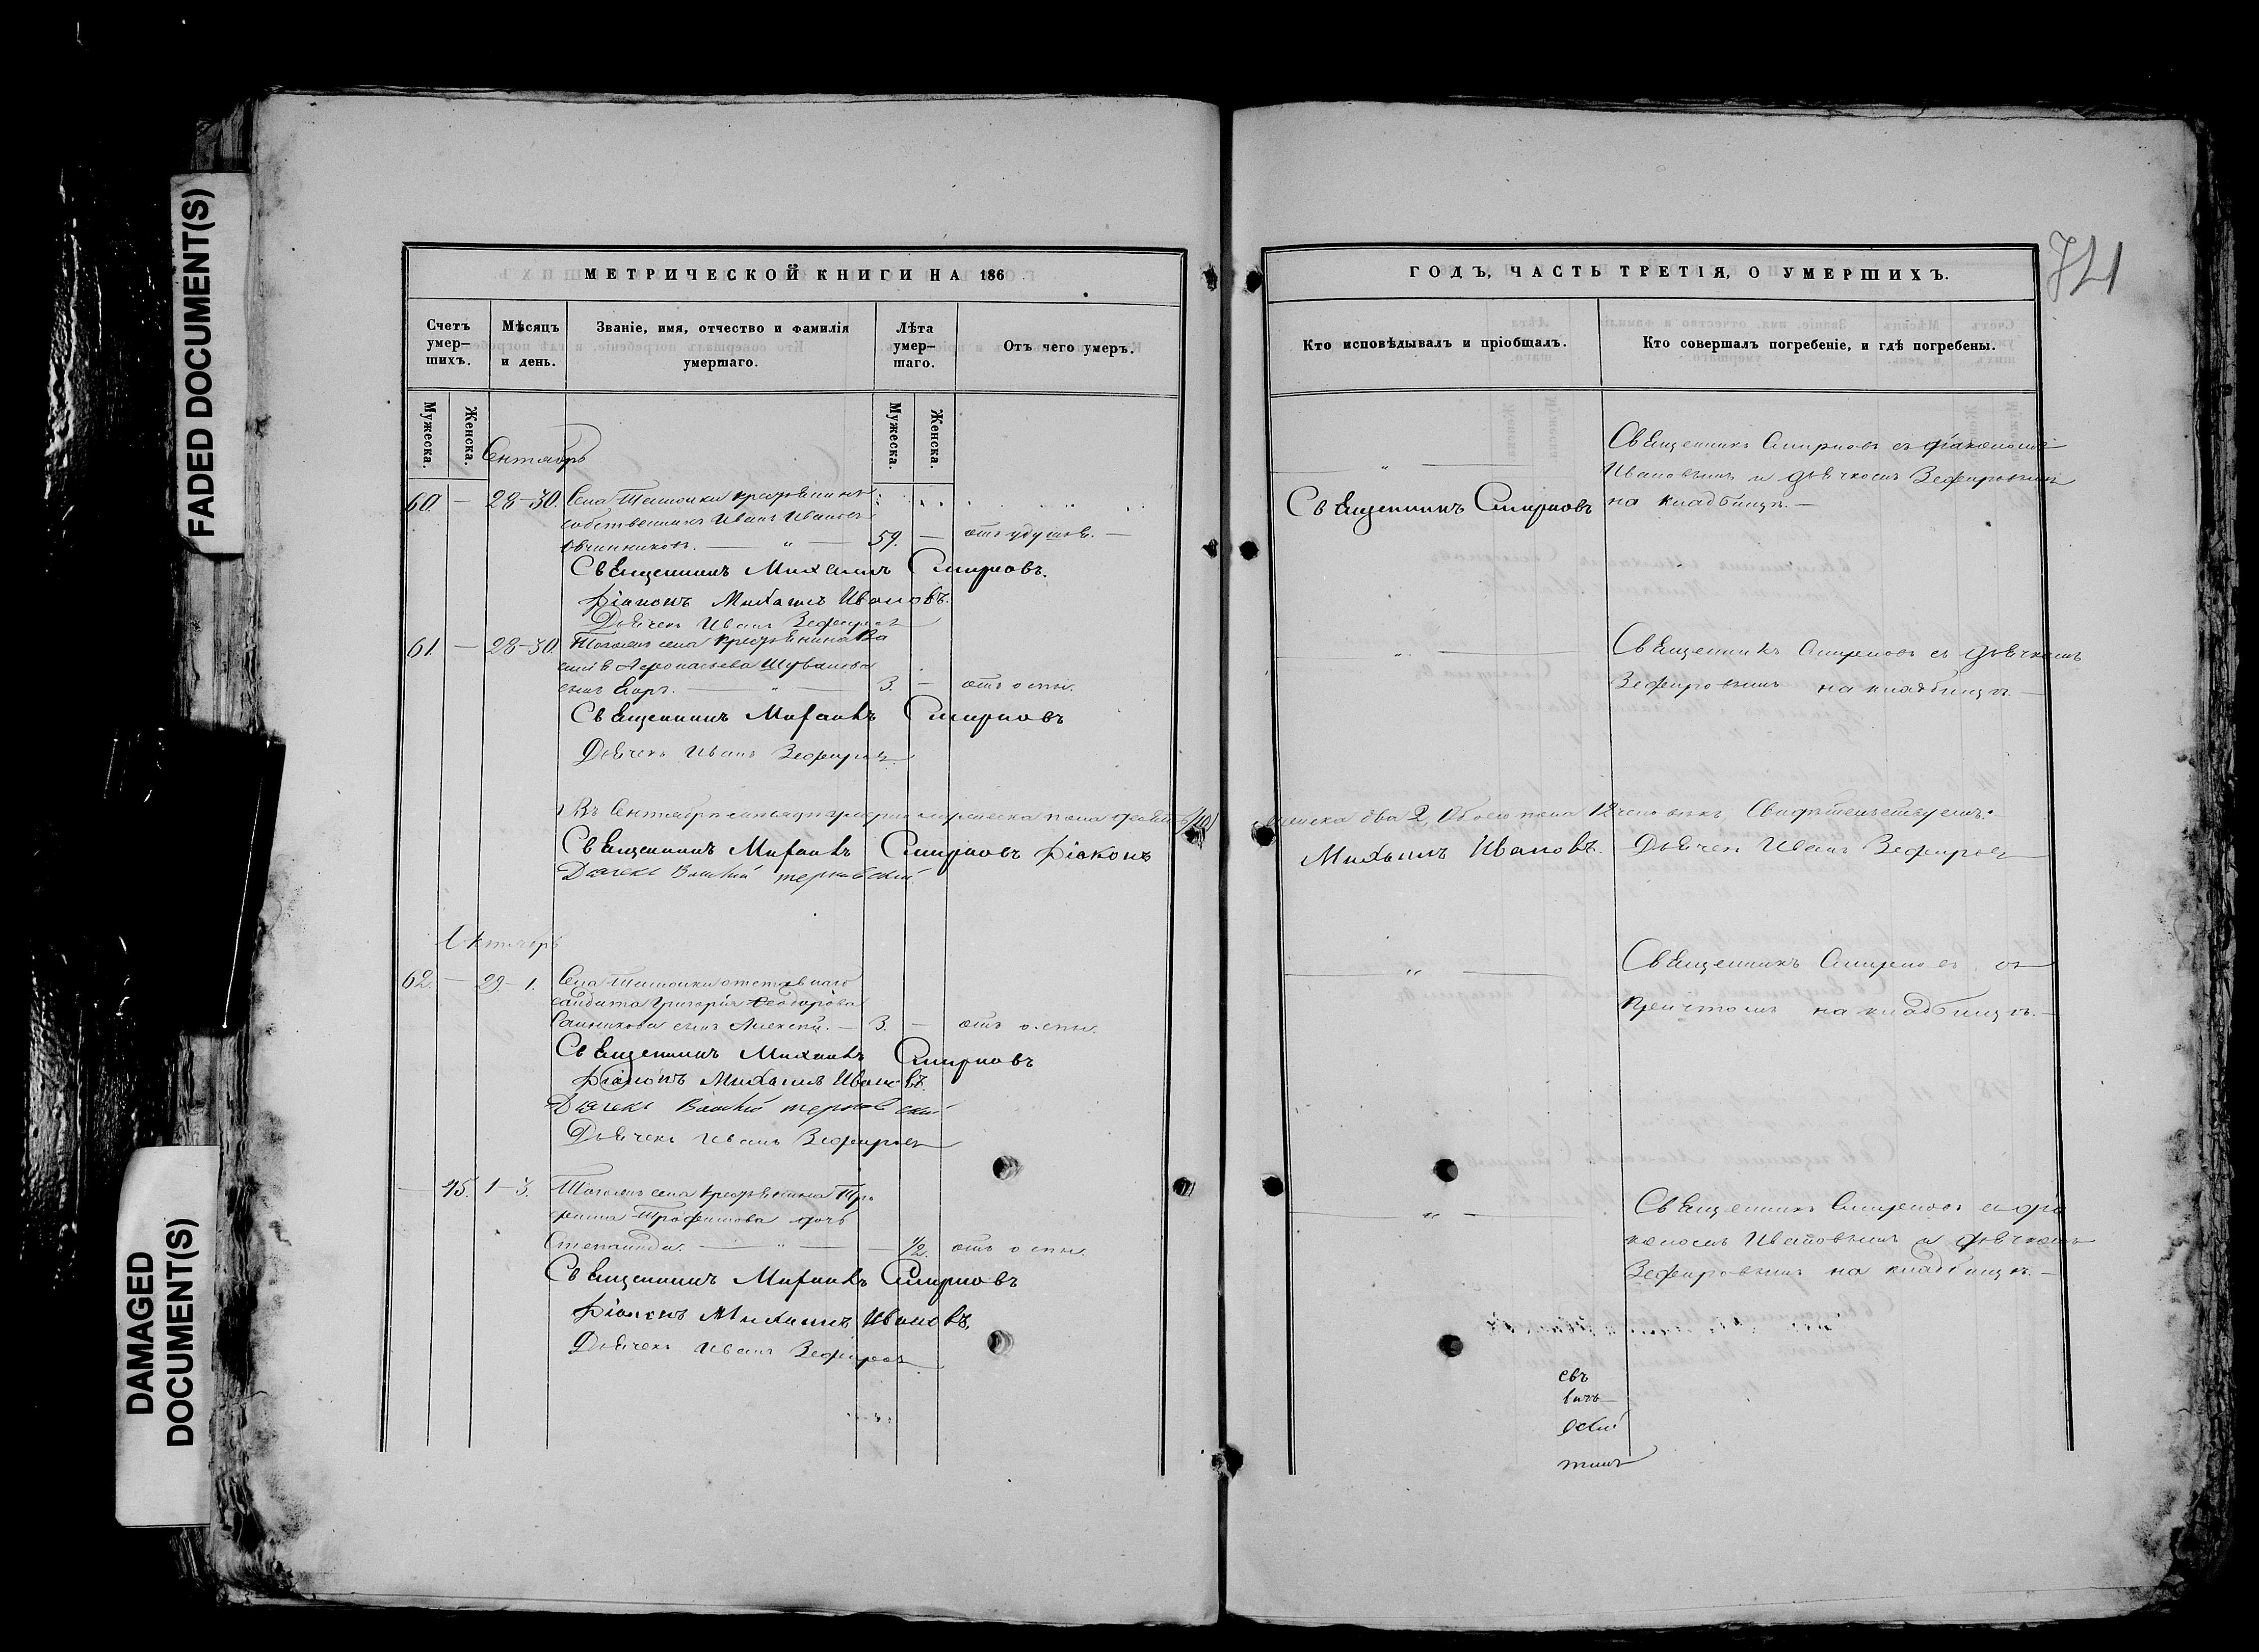 FADED DOCUMENT(S)
DAMAGED
DOCUMENT(S)
МЕТРИЧЕСКОЙ КНИГИ НА 186
Счетъ умер-шихъ.
Мѣсяцъ и день.
Званіе, имя, отчество и фамилія умершаго.
Лѣта умер-шаго.
Отъ чего умеръ.
Мужеска.
Женска.
Мужеска.
Женска.
Сентябрь
60. — 28-30. Села крестьянинъ
собственникъ Иванъ Ивановъ
Овчинниковъ. — " — 59. — отъ удушья. —
Священникъ Михаилъ Смирновъ.
Діаконъ Михаилъ Ивановъ.
Дьячекъ Иванъ Зефировъ
61. — 28-30. Тогожъ села крестьянина Ва
силія Шувалова
сынъ Егоръ. — " — 3. — отъ оспы.
Священникъ Михаилъ Смирновъ
Дьячекъ Иванъ Зефировъ
Въ Сентябрѣ мѣсяцѣ умерло мужеска пола десять (10)
Священникъ Михаилъ Смирновъ Діаконъ
Дьячекъ
Октябрь
62. — 29-1. Села отставнаго
солдата Григорія Ѳеодорова
сынъ Алексѣй. — 3. — отъ оспы.
Священникъ Михаилъ Смирновъ
Діаконъ Михаилъ Ивановъ.
Дьячекъ
Дьячекъ Иванъ Зефировъ
— 45. 1-3. Тогожъ села крестьянина Тро
фима Трофимова дочь
Степанида. — " — 1/2. отъ оспы.
Священникъ Михаилъ Смирновъ
Діаконъ Михаилъ Ивановъ.
Дьячекъ Иванъ Зефировъ
ГОДЪ, ЧАСТЬ ТРЕТІЯ, О УМЕРШИХЪ.
741
Кто исповѣдывалъ и пріобщалъ.
Кто совершалъ погребеніе, и гдѣ погребены.
— " —
Священникъ Смирновъ
Священникъ Смирновъ съ діакономъ
Ивановымъ и дьячкомъ Зефировымъ
на кладбищѣ. —
— " —
Священникъ Смирновъ съ дьячкомъ
Зефировымъ на кладбищѣ. —
женска два 2, Обоего пола 12 человѣкъ, Свидѣтельствуемъ:
Михаилъ Ивановъ. Дьячекъ Иванъ Зефировъ
— " —
Священникъ Смирновъ съ
причтомъ на кладбищѣ. —
— " —
Священникъ Смирновъ съ діа
кономъ Ивановымъ и дьячкомъ
Зефировымъ на кладбищѣ. —
евъ